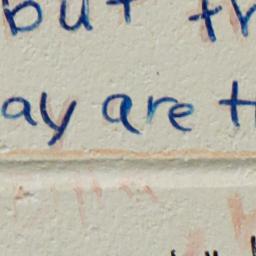 but tr
ay are t